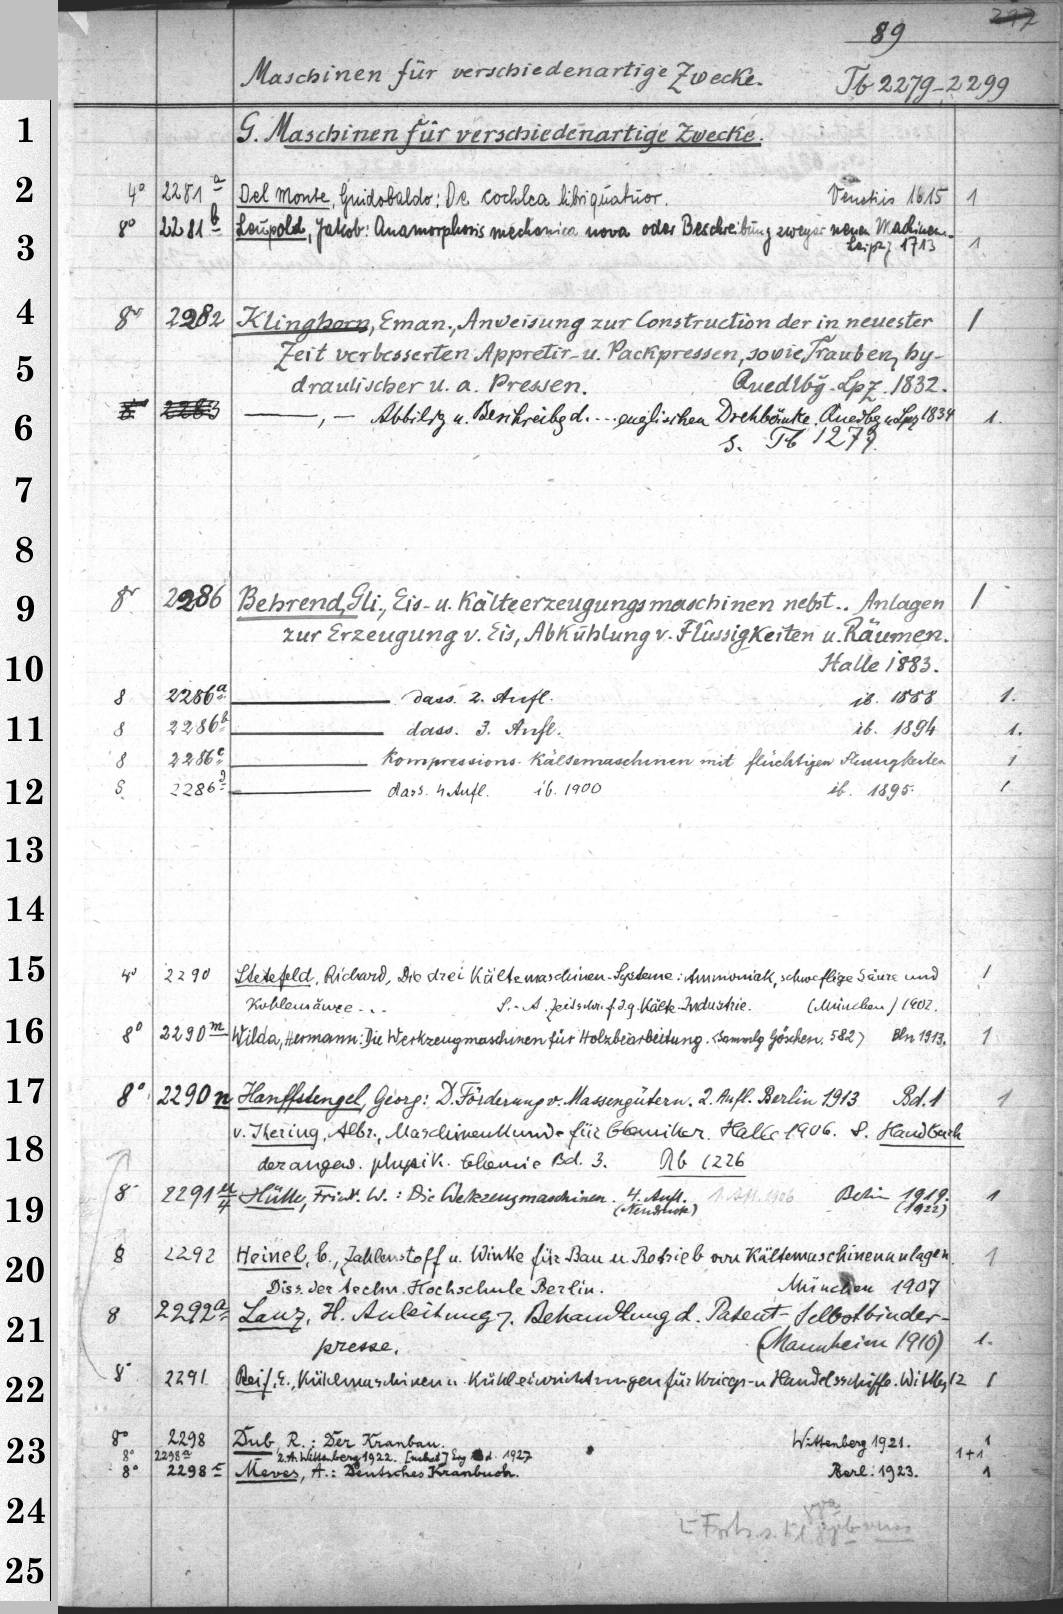 89
Maschinen für verschiedenartige Zwecke. Tb 2279-2299
1 G. Maschinen für verschiedenartige Zwecke.
2 4° 2281 a Del Monte, Guidobaldo: De cochlea libri quatuor. Venetiis 1615 1
8° 2281 b Leupold, Jakob: Anamorphosis mechanica nova oder Beschreibung zweyer neuen Machinen.
3 Leipz 1713 1
4 8° 2282 Klinghorn, Eman., Anweisung zur Construction der in neuester 1
Zeit verbesserten Appretir- u. Packpressen, sowie Trauben, hy-
5 draulischer u. a. Pressen. Quedlbg.-Lpz. 1832.
6 8° 2283 ———, — Abbildg u. Beschreibg d. ... englischen Drehbänke. Quedbg u Lpz 1834 1.
s. Tb 1279.
7
8
9 8° 2286 Behrend, Gli., Eis- u. Kälteerzeugungsmaschinen nebst.. Anlagen 1
zur Erzeugung v. Eis, Abkühlung v. Flüssigkeiten u. Räumen.
10 Halle 1883.
8 2286a ——— dass. 2. Aufl. ib. 1888 1.
11 8 2286b ——— dass. 3. Aufl. ib. 1894 1.
8 2286c ——— Kompressions-Kältemaschinen mit flüchtigen 1
12 8. 2286d ——— dass. 4 Aufl. ib. 1900 ib. 1895. 1
13
14
15 4° 2290 Stetefeld, Richard, Die drei Kältemaschinen-Systeme: Ammoniak, schweflige Säure und 1
Kohlensäure... S.-A. Zeitschr. f. d. g. Kälte-Industrie. (München) 1902.
16 8° 2290 m Wilda, Hermann: Die Werkzeugmaschinen für Holzbearbeitung. (Sammlg Göschen. 582) Bln 1913. 1
17 8° 2290 n Hanffstengel, Georg: D. Förderung v. Massengütern. 2. Aufl. Berlin 1913 Bd. 1 1
v. Ihering, Albr., Maschinenkunde für Chemiker. Halle 1906. S. Handbuch
18 der angew. physik. Chemie Bd. 3. Nb 1226
8° 2291 Hülle, Friedr. W.: Die Werkzeugmaschinen. 4. Aufl. Berlin 1919. 1
19 (Neudruck) (1922)
8 2292 Heinel, C., Zahlenstoff u. Winke für Bau u Betrieb von Kältemaschinenanlagen. 1
20 Diss. der techn. Hochschule Berlin. München 1907
8 2292a Lanz, H. Anleitung z. Behandlung d. Patent-Selbstbinder-
21 presse. (Mannheim 1910) 1.
22 8° 2291 Reif, E., Kühlmaschinen u. Kühleinrichtungen für Kriegs- u Handelsschiffe. Wittbg 12 1
23 8° 2298 Dub, R.: Der Kranbau. Wittenberg 1921. 1
8° 2298a 2. A. Wittenberg 1922. 1927 1+1
8° 2298c Meves, A.: Deutsches Kranbuch. Berl. 1923. 1
24
25